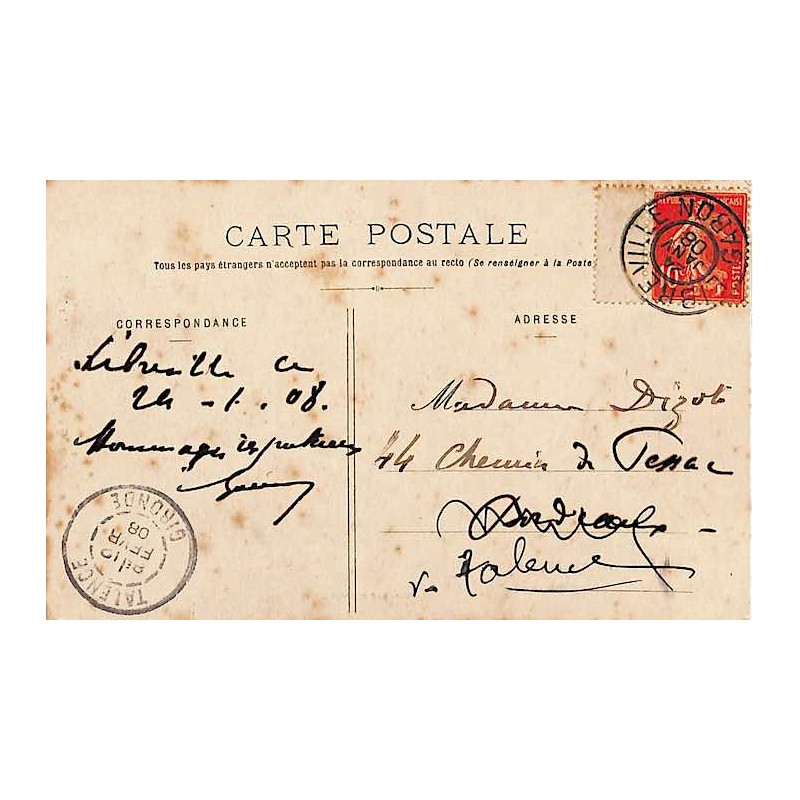 CARTE POSTALE
Tous les pays étrangers n'acceptent pas la correspondance au recto (Se renseigner à la Poste
CORRESPONDANCE
Libreville ce
24 - 1. 08.
Hommages respectueux
ADRESSE
Madame Dizot
44 Chemin de Pessac
Bordeaux -
Talence
LIBREVILLE GABON
JANV
08
POSTES
TALENCE GIRONDE
FEVR
08